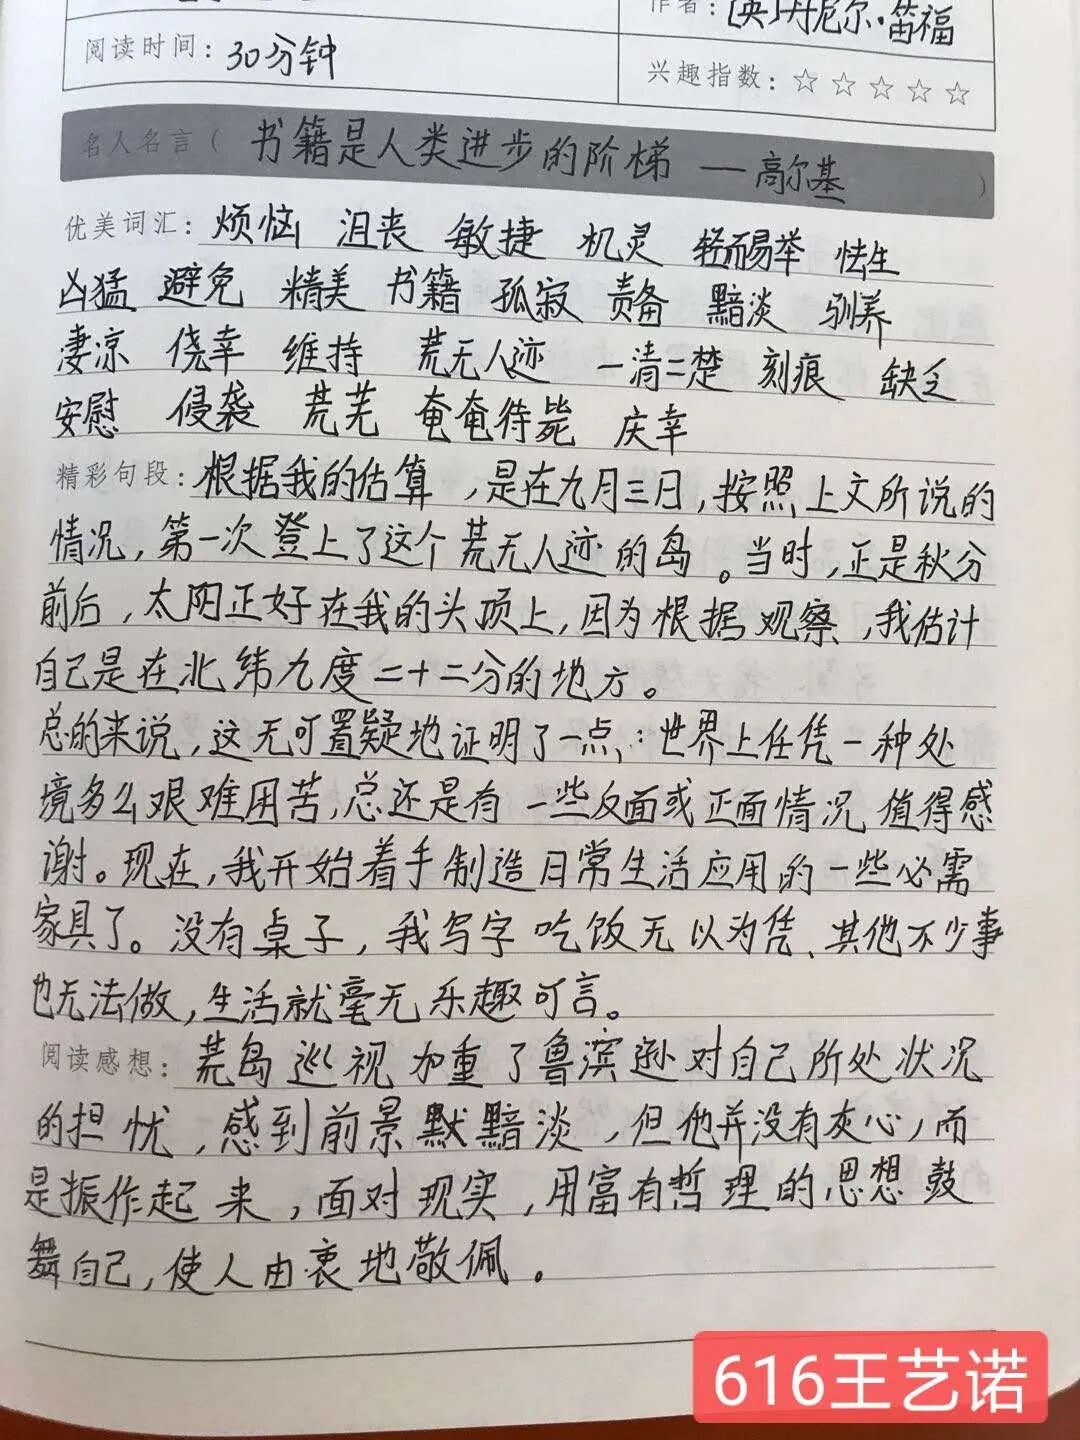 作者：[英]丹尼尔·笛福
阅读时间：30分钟
兴趣指数：☆☆☆☆☆
名人名言（书籍是人类进步的阶梯 ——高尔基）
优美词汇：烦恼 沮丧 敏捷 机灵 轻而易举 怯生
凶猛 避免 精美 书籍 孤寂 责备 黯淡 驯养
凄凉 侥幸 维持 荒无人迹 一清二楚 刻痕 缺乏
安慰 侵袭 荒芜 奄奄待毙 庆幸
精彩句段：根据我的估算，是在九月三日，按照上文所说的
情况，第一次登上了这个荒无人迹的岛。当时，正是秋分
前后，太阳正好在我的头顶上，因为根据观察，我估计
自己是在北纬九度二十二分的地方。
总的来说，这无可置疑地证明了一点：世界上任凭一种处
境多么艰难困苦，总还是有一些反面或正面情况值得感
谢。现在，我开始着手制造日常生活应用的一些必需
家具了。没有桌子，我写字吃饭无以为凭、其他不少事
也无法做，生活就毫无乐趣可言。
阅读感想：荒岛巡视加重了鲁滨逊对自己所处状况
的担忧，感到前景默黯淡，但他并没有灰心，而
是振作起来，面对现实，用富有哲理的思想鼓
舞自己，使人由衷地敬佩。
616王艺诺